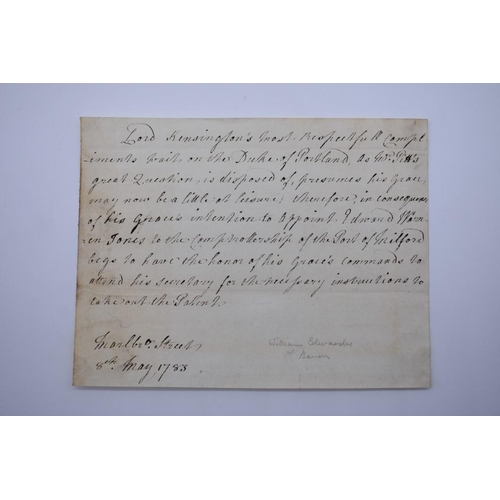 Lord Kensington's most Respectfull Compl-
iments wait on the Duke of Portland, as Mr. Pitt's
great Question, is disposed of, presumes his Grace,
may now be a little at leisure; therefore, in consequence
of his Grace's intention to Appoint Edward Warr-
en Jones to the Comptrollership of the Port of Milford
begs to have the honor of his Grace's commands to
attend his secretary for the necessary instructions to
take out the Patent.
Marlbro. Street,
8th. May, 1783
William Edwardes
1st Baron